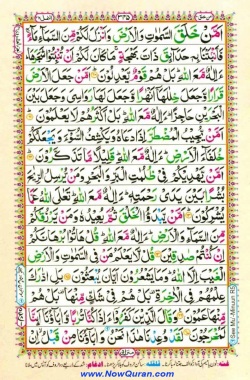 ۳۴۵
اَمَّنْ خَلَقَ السَّمٰوٰتِ وَالْاَرْضَ وَاَنْزَلَ لَكُمْ مِّنَ السَّمَآءِ مَآءً
فَاَنْۢبَتْنَا بِهٖ حَدَآئِقَ ذَاتَ بَهْجَةٍ مَا كَانَ لَكُمْ اَنْ تُنْۢبِتُوْا شَجَرَهَا
ءَاِلٰهٌ مَّعَ اللّٰهِ بَلْ هُمْ قَوْمٌ يَّعْدِلُوْنَ اَمَّنْ جَعَلَ الْاَرْضَ
قَرَارًا وَّجَعَلَ خِلٰلَهَآ اَنْهٰرًا وَّجَعَلَ لَهَا رَوَاسِيَ وَجَعَلَ بَيْنَ
الْبَحْرَيْنِ حَاجِزًا ءَاِلٰهٌ مَّعَ اللّٰهِ بَلْ اَكْثَرُهُمْ لَا يَعْلَمُوْنَ
اَمَّنْ يُّجِيْبُ الْمُضْطَرَّ اِذَا دَعَاهُ وَيَكْشِفُ السُّوْٓءَ وَيَجْعَلُكُمْ
خُلَفَآءَ الْاَرْضِ ءَاِلٰهٌ مَّعَ اللّٰهِ قَلِيْلًا مَّا تَذَكَّرُوْنَ
اَمَّنْ يَّهْدِيْكُمْ فِيْ ظُلُمٰتِ الْبَرِّ وَالْبَحْرِ وَمَنْ يُّرْسِلُ الرِّيٰحَ
بُشْرًۢا بَيْنَ يَدَيْ رَحْمَتِهٖ ءَاِلٰهٌ مَّعَ اللّٰهِ تَعٰلَى اللّٰهُ عَمَّا
يُشْرِكُوْنَ اَمَّنْ يَّبْدَؤُا الْخَلْقَ ثُمَّ يُعِيْدُهٗ وَمَنْ يَّرْزُقُكُمْ
مِّنَ السَّمَآءِ وَالْاَرْضِ ءَاِلٰهٌ مَّعَ اللّٰهِ قُلْ هَاتُوْا بُرْهَانَكُمْ
اِنْ كُنْتُمْ صٰدِقِيْنَ قُلْ لَّا يَعْلَمُ مَنْ فِي السَّمٰوٰتِ وَالْاَرْضِ
الْغَيْبَ اِلَّا اللّٰهُ وَمَا يَشْعُرُوْنَ اَيَّانَ يُبْعَثُوْنَ بَلِ ادّٰرَكَ
عِلْمُهُمْ فِي الْاٰخِرَةِ بَلْ هُمْ فِيْ شَكٍّ مِّنْهَا بَلْ هُمْ
مِّنْهَا عَمُوْنَ وَقَالَ الَّذِيْنَ كَفَرُوْٓا ءَاِذَا كُنَّا تُرٰبًا وَّاٰبَآؤُنَآ اَئِنَّا
لَمُخْرَجُوْنَ لَقَدْ وُعِدْنَا هٰذَا نَحْنُ وَاٰبَآؤُنَا مِنْ قَبْلُ اِنْ
www.NowQuran.com